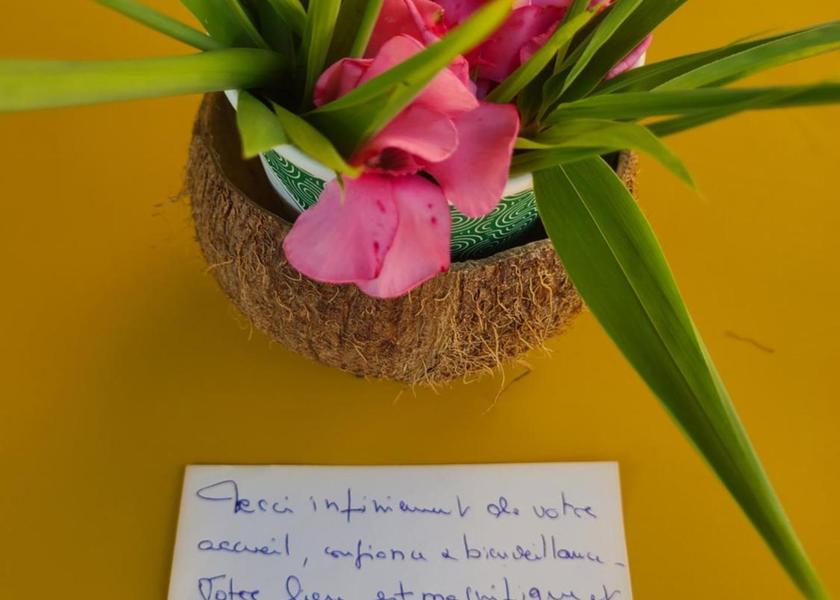 Merci infiniment de votre
accueil, confiance & bienveillance -
Votre lieu est magnifique et